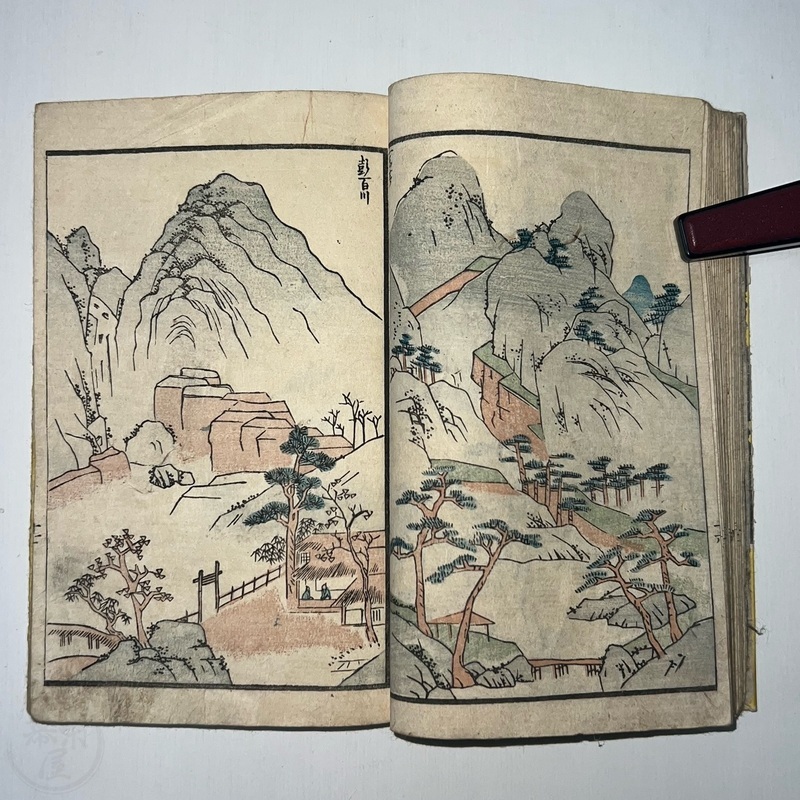 彭百川